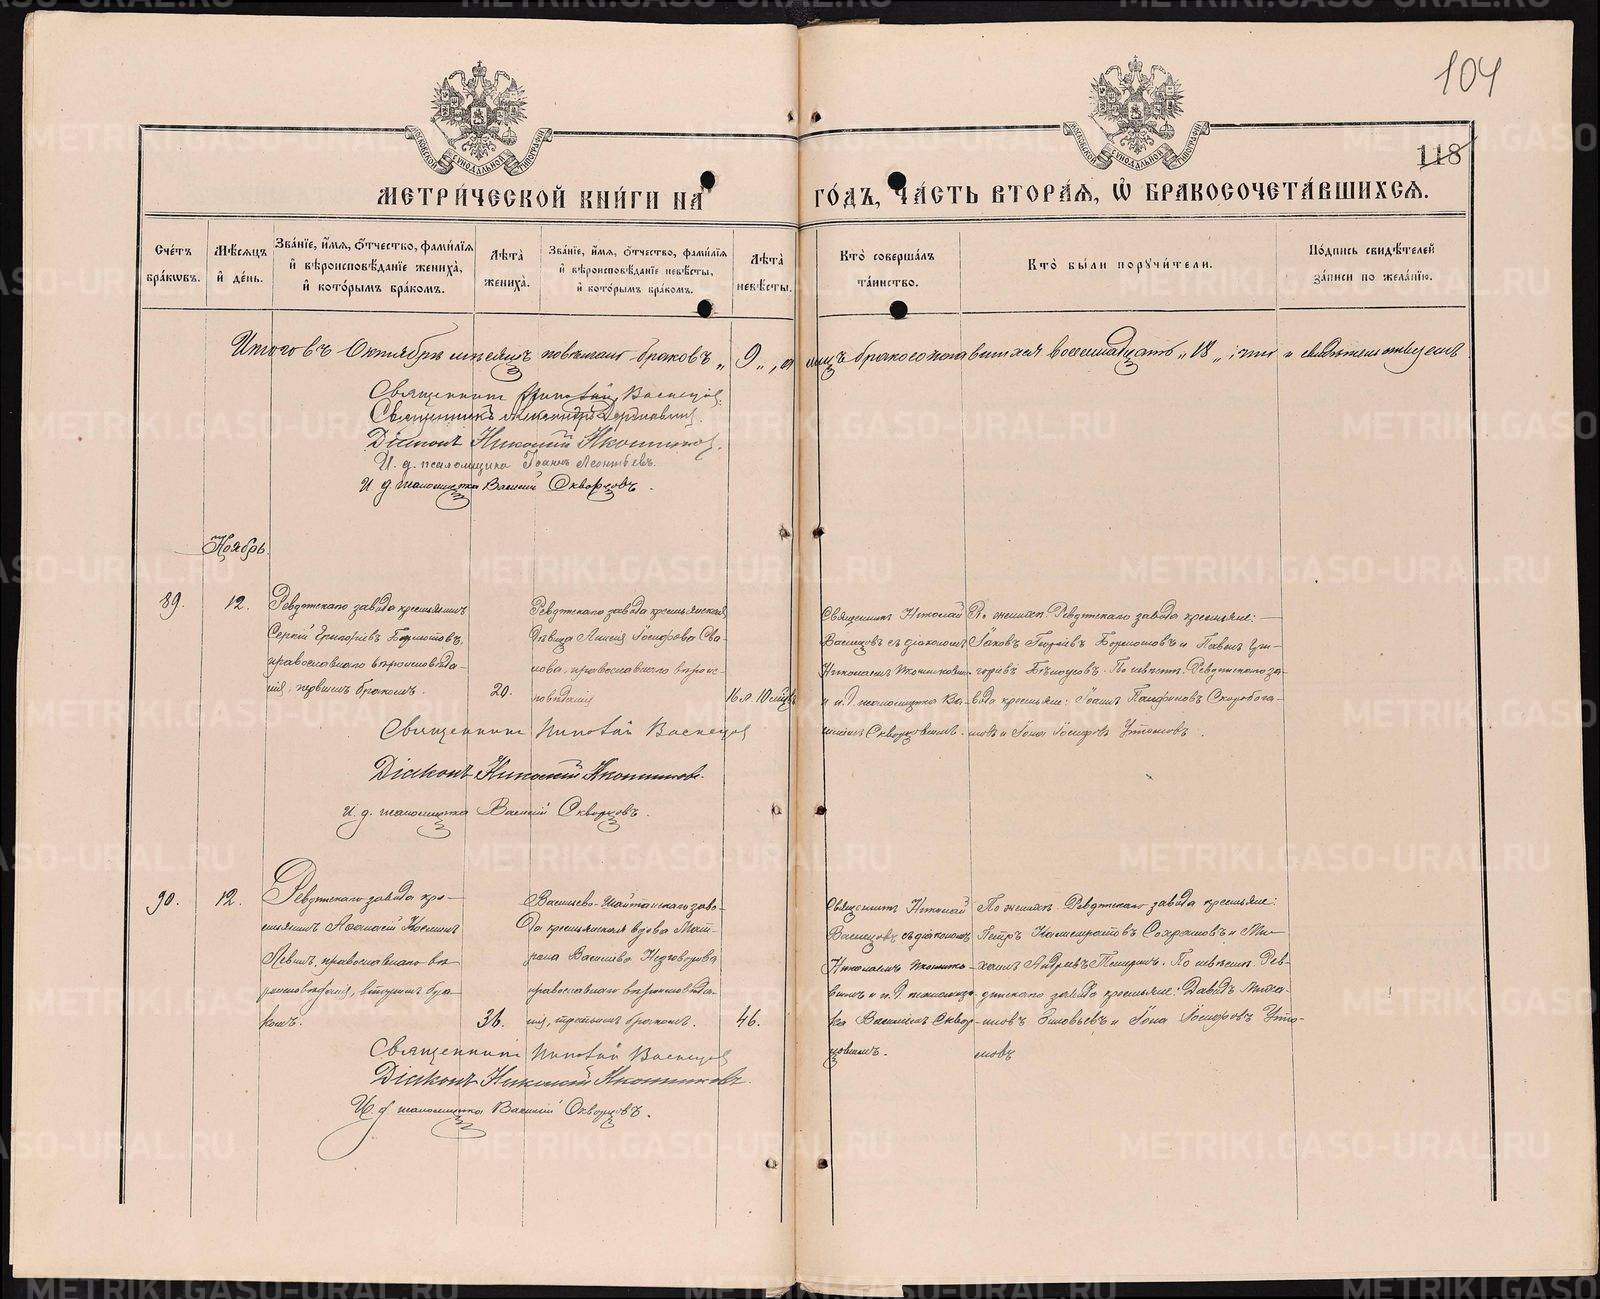 104
118
МОСКОВСКОЙ СѴНОДАЛЬНОЙ ТИПОГРАФІИ
МОСКОВСКОЙ СѴНОДАЛЬНОЙ ТИПОГРАФІИ
МЕТРИ́ЧЕСКОЙ КНИ́ГИ НА ГО́ДЪ, ЧА́СТЬ ВТОРА́Я, Ѡ БРАКОСОЧЕТА́ВШИХСЯ.
Сче́тъ бра́кѡвъ.
Мѣ́сяцъ и҆ де́нь.
Зва́нїе, и҆́мя, ѻ҆́тчество, фами́лїя и҆ вѣроисповѣ́данїе жениха̀, и҆ кото́рымъ бра́комъ.
Лѣ́та̀ жениха̀.
Зва́нїе, и҆́мя, ѻ҆́тчество, фами́лїя и҆ вѣроисповѣ́данїе невѣ́сты, и҆ кото́рымъ бра́комъ.
Лѣ́та̀ невѣ́сты.
Кто̀ соверша́лъ та́инство.
Кто̀ бы́ли пору́чители.
По́дпись свидѣ́телей за́писи по жела́нїю.
Итого въ Октябрѣ мѣсяцѣ повѣнчано браковъ „ 9 „, а лицъ бракосочетавшихся восемнадцать „ 18 „; что и свидѣтельствуемъ
Священникъ Николай Васнецовъ.
Священникъ Александръ
Діаконъ Николай Иконниковъ.
И. д. псаломщика Іоаннъ Леонтьевъ.
И д псаломщика Василій Скворцовъ.
Ноябрь
89.
12.
Ревдинскаго завода крестьянинъ
Сергій Григорьевъ Бормотовъ,
православнаго вѣроисповѣда-
нія, первымъ бракомъ.
20.
Ревдинскаго завода крестьянская
дѣвица Іосифова
православнаго вѣрои-
сповѣданія
16 л. 10 мѣсц.
Священникъ Николай
Васнецовъ съ діакономъ
Николаемъ Иконнико-
и и. д псаломщика Ва-
силіемъ Скворцовымъ.
По женихѣ: Ревдинскаго завода крестьяне:
Іаковъ Георгіевъ Бормотовъ и Павелъ Гри-
горьевъ Бѣлоусовъ. По невѣстѣ: Ревдинскаго за-
вода крестьяне: Іоаннъ Скоробога-
товъ и Іона Іосифовъ Утюмовъ.
Священникъ Николай Васнецовъ
Діаконъ Николай Иконниковъ.
И. д. псаломщика Василій Скворцовъ.
90.
12.
Ревдинскаго завода кре-
стьянинъ Аѳанасій Косминъ
Левинъ, православнаго вѣ-
роисповѣданія, вторымъ бра-
комъ.
36.
Васильево-Шайтанскаго заво-
да крестьянская вдова Мат-
рона Васильева Незговорова
православнаго вѣроисповѣда-
нія, третьимъ бракомъ.
46.
Священникъ Николай
Васнецовъ съ діакономъ
Николаемъ Иконнико-
вымъ и и. д псаломщи-
ка Василіемъ Сквор-
цовымъ.
По женихѣ: Ревдинскаго завода крестьяне:
Петръ Калистратовъ и Ми-
хаилъ Андреевъ По невѣстѣ: Рев-
динскаго завода крестьяне: Давидъ Миха-
иловъ Зиновьевъ и Іона Іосифовъ Утю-
мовъ
Священникъ Николай Васнецовъ
Діаконъ Николай Иконниковъ.
И. д псаломщика Василій Скворцовъ.
METRIKI.GASO-URAL.RU